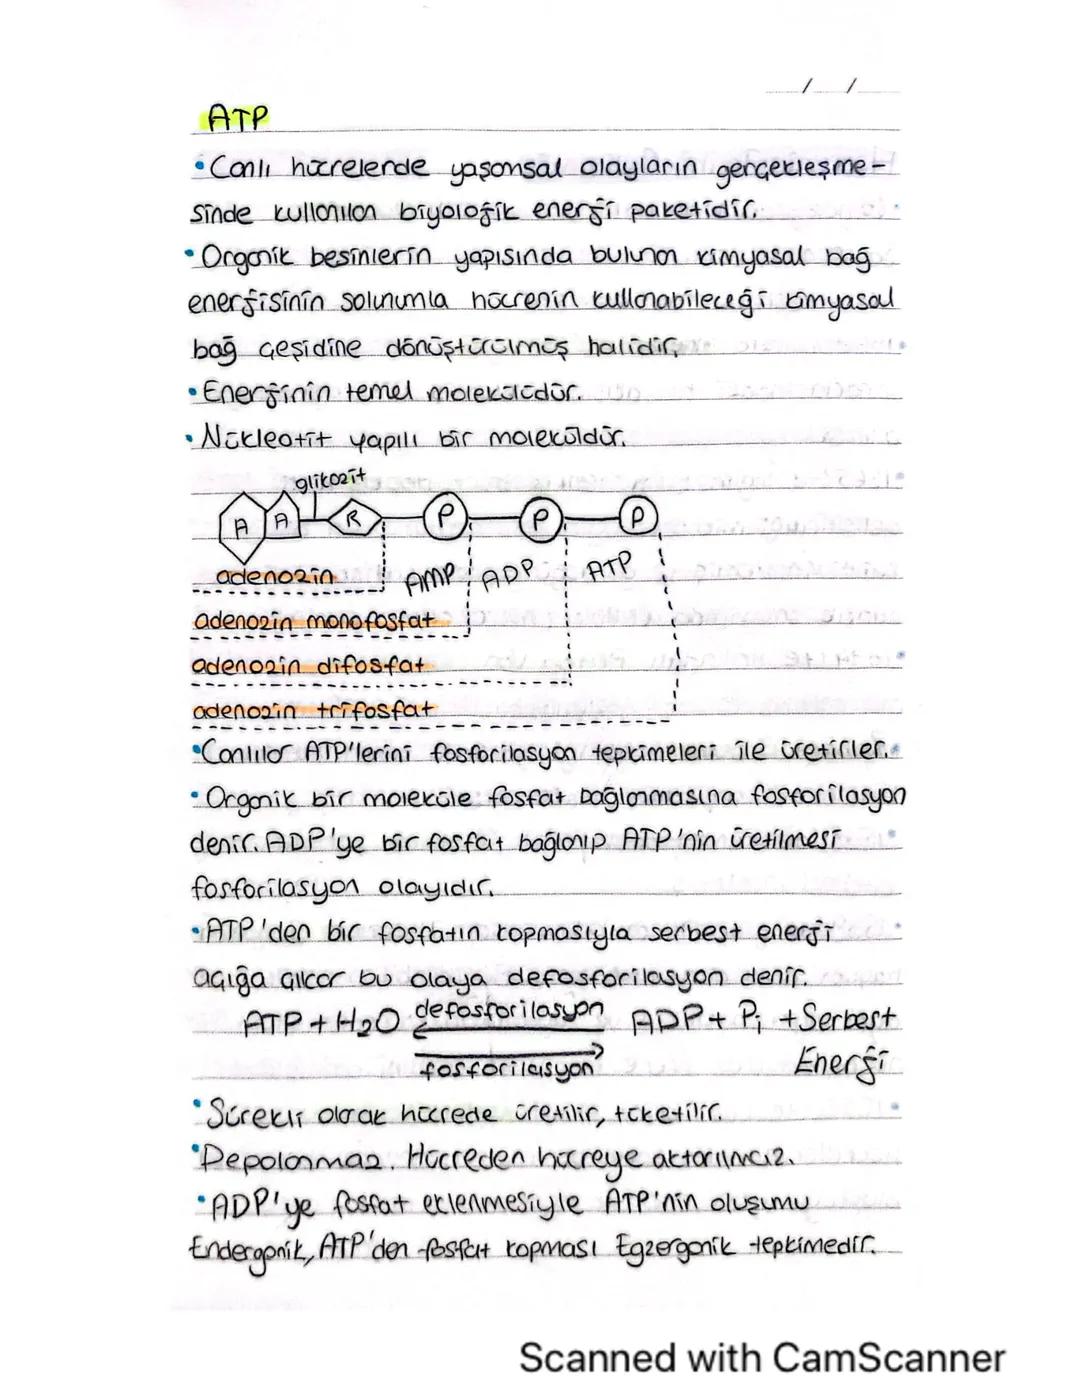 / /
ATP
•Canlı hücrelerde yaşamsal olayların gerçekleşme-
sinde kullanılan biyolojik enerji paketidir.
•Organik besinlerin yapısında bulunan kimyasal bağ
enerjisinin solunumla hücrenin kullanabileceği kimyasal
bağ çeşidine dönüştürülmüş halidir.
•Enerjinin temel molekülüdür.
•Nükleotit yapılı bir moleküldür.
glikozit
A A R P P P
adenozin AMP ADP ATP
adenozin monofosfat
adenozin difosfat
adenozin trifosfat
•Canlılar ATP'lerini fosforilasyon tepkimeleri ile üretirler.
•Organik bir moleküle fosfat bağlanmasına fosforilasyon
denir. ADP'ye bir fosfat bağlanıp ATP'nin üretilmesi
fosforilasyon olayıdır.
•ATP'den bir fosfatın kopmasıyla serbest enerji
açığa çıkar bu olaya defosforilasyon denir.
ATP + H2O defosforilasyon ADP + Pi + Serbest
fosforilasyon Enerji
•Sürekli olarak hücrede üretilir, tüketilir.
•Depolanmaz. Hücreden hücreye aktarılmaz.
•ADP'ye fosfat eklenmesiyle ATP'nin oluşumu
Endergonik, ATP'den fosfat kopması Egzergonik tepkimedir.
Scanned with CamScanner